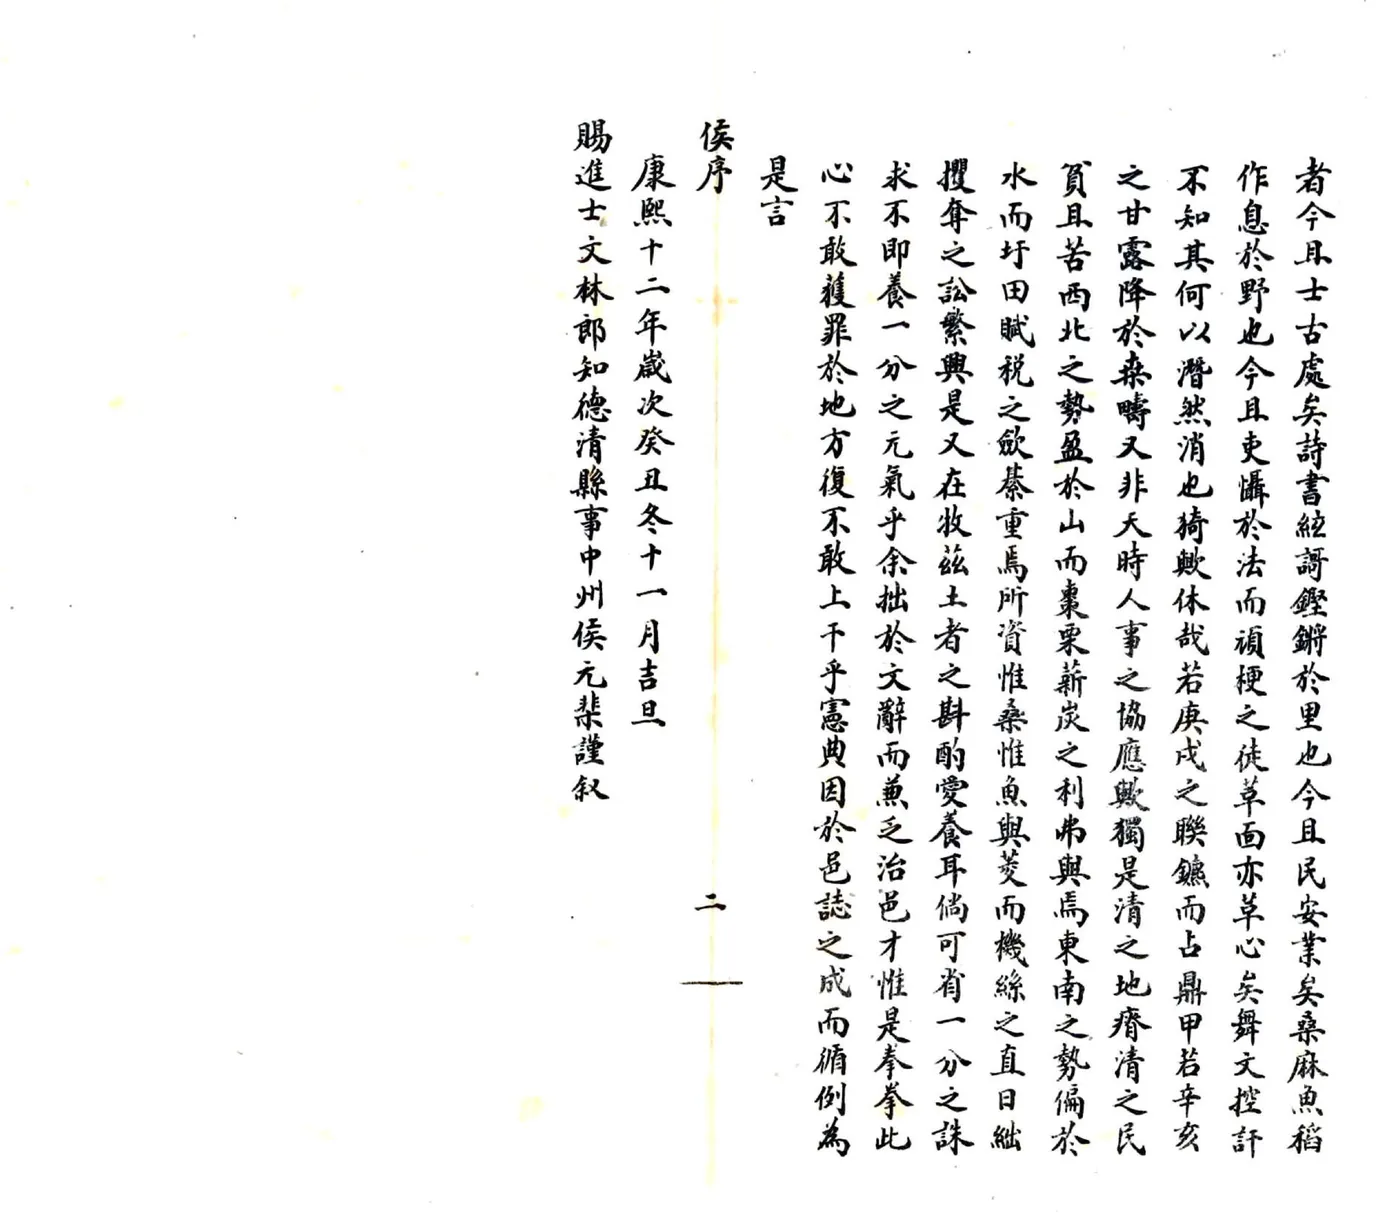 者今且士古處矣詩書絃謌鏗鏘於里也今且民安業矣桑麻魚稻
作息於野也今且吏懾於法而頑梗之徒革面亦革心矣舞文控訐
不知其何以潛然消也猗歟休哉若庚戌之聯鑣而占鼎甲若辛亥
之甘露降於桒疇又非天時人事之協應歟獨是清之地瘠清之民
貧且苦西北之勢盈於山而棗栗薪炭之利弗與焉東南之勢偏於
水而圩田賦税之歛綦重焉所資惟桑惟魚與菱而機絲之直日絀
攫奪之訟繁興是又在牧茲土者之斟酌愛養耳倘可省一分之誅
求不即養一分之元氣乎余拙於文辭而兼乏治邑才惟是拳拳此
心不敢獲罪於地方復不敢上干乎憲典因於邑誌之成而循例為
是言
侯序
二
康熙十二年歲次癸丑冬十一月吉旦
賜進士文林郎知德清縣事中州侯元棐謹叙